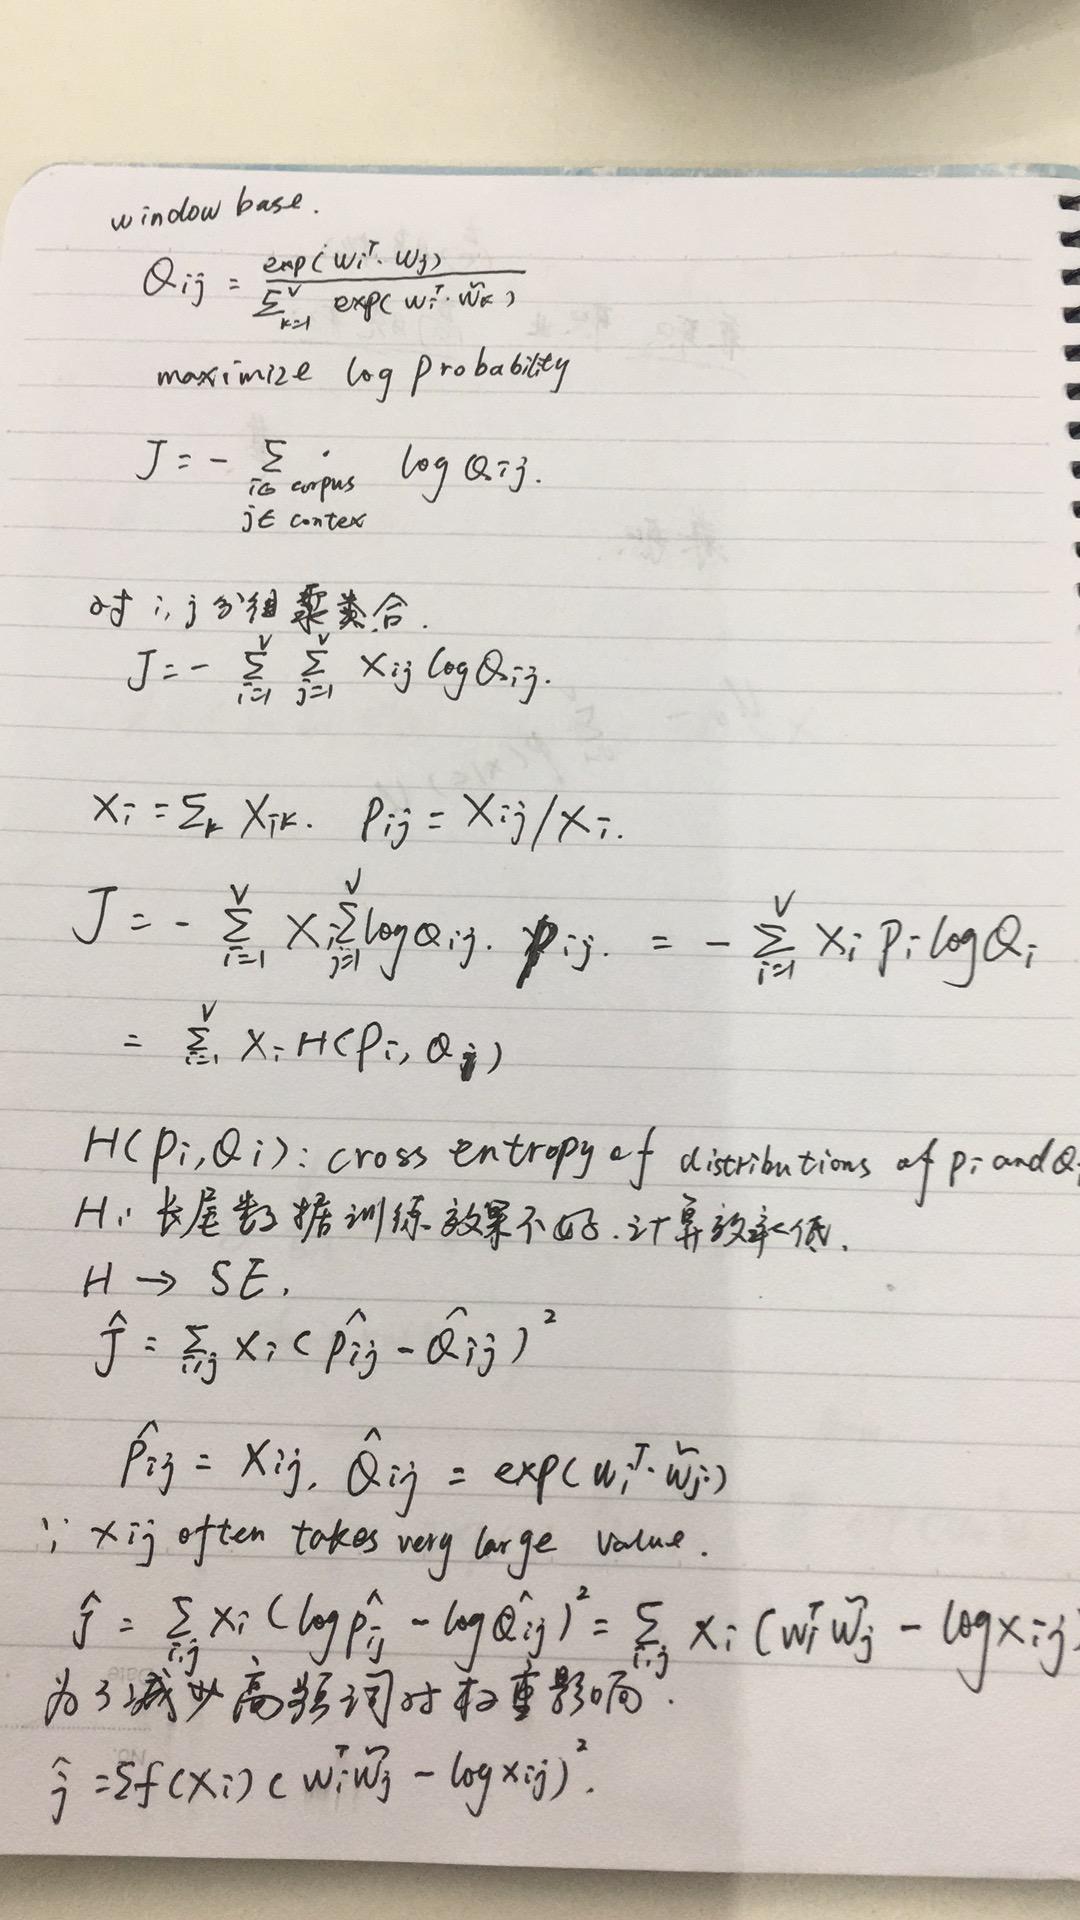 window base.
Qij = exp(wiᵀ·wj) / Σₖ₌₁ⱽ exp(wiᵀ·w̃k)
maximize log probability
J = - Σ i∈ corpus j∈ contex log Qij.
对 i, j 分组聚类合.
J = - Σᵢ₌₁ⱽ Σⱼ₌₁ⱽ Xij log Qij.
Xi = Σₖ Xik. Pij = Xij/Xi.
J = - Σᵢ₌₁ⱽ Xi Σⱼ₌₁ⱽ log Qij. Pij. = - Σᵢ₌₁ⱽ Xi Pi log Qi
= Σᵢ₌₁ⱽ Xi H(Pi, Qi)
H(Pi, Qi): cross entropy of distributions of Pi and Q
H: 长尾数据训练效果不好.计算效率低.
H → SE.
Ĵ = Σᵢ,ⱼ Xi (P̂ij - Q̂ij)²
P̂ij = Xij, Q̂ij = exp(wiᵀ·w̃j)
∵ Xij often takes very large value.
Ĵ = Σᵢ,ⱼ Xi (log P̂ij - log Q̂ij)² = Σᵢ,ⱼ Xi (wiᵀw̃j - log Xij)
为了减少高频词对权重影响.
Ĵ = Σf(Xi) (wiᵀw̃j - log Xij)².